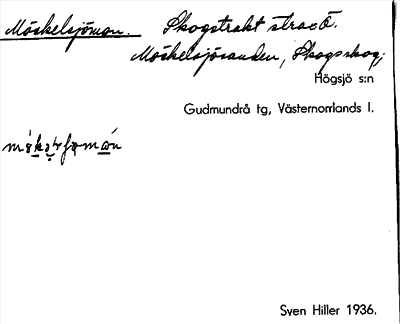 Möckelsjömon. Skogstrakt strax Ö.
Möckelsjösanden, Skogsskog,
Högsjö s:n
Gudmundrå tg, Västernorrlands l.
Sven Hiller 1936.